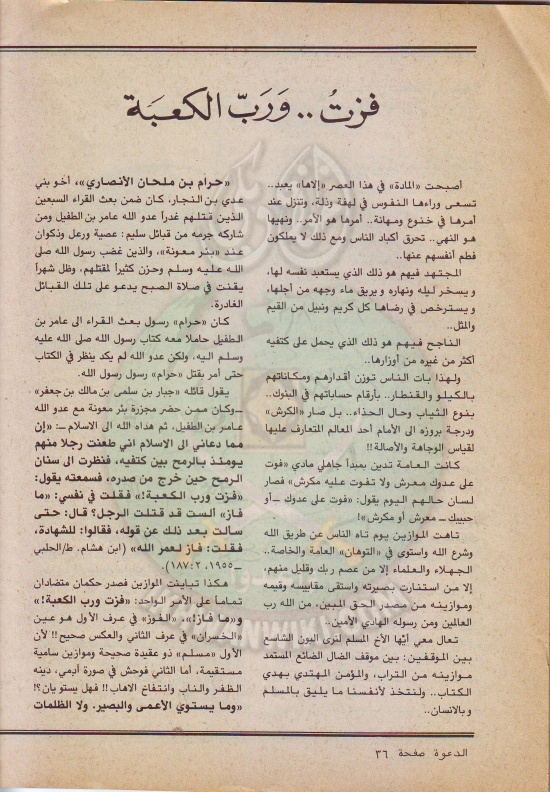 فزتُ .. وَرَبّ الكعبَة
أصبحت «المادة» في هذا العصر «إلاها» يعبد..
تسعى وراءها النفوس في لهفة وذلة، وتنزل عند
أمرها في خنوع ومهانة.. أمرها هو الأمر.. ونهيها
هو النهي.. تحرق أكباد الناس ومع ذلك لا يملكون
فطم أنفسهم عنها..
المجتهد فيهم هو ذلك الذي يستعبد نفسه لها،
ويسخر ليله ونهاره ويريق ماء وجهه من أجلها،
ويسترخص في رضاها كل كريم ونبيل من القيم
والمثل..
الناجح فيهم هو ذلك الذي يحمل على كتفيه
أكثر من غيره من أوزارها..
ولهذا بات الناس توزن أقدارهم ومكاناتهم
بالكيلو والقنطار.. بأرقام حساباتهم في البنوك..
بنوع الثياب وحال الحذاء.. بل صار «الكرش»
ودرجة بروزه الى الأمام أحد المعالم المتعارف عليها
لقياس الوجاهة والأصالة!!
كانت العامة تدين بمبدأ جاهلي مادي «فوت
على عدوك معرش ولا تفوت عليه مكرش» فصار
لسان حالهم اليوم يقول: «فوت على عدوك ـ أو
حبيبك ـ معرش أو مكرش»!
تاهت الموازين يوم تاه الناس عن طريق الله
وشرع الله واستوى في «التوهان» العامة والخاصة..
الجهلاء والعلماء إلا من عصم ربك وقليل منهم،
إلا من استنارت بصيرته واستقى مقاييسه وقيمه
وموازينه من مصدر الحق المبين، من الله رب
العالمين ومن رسوله الهادي الأمين..
تعال معي أيّها الأخ المسلم لنرى البون الشاسع
بين الموقفين: بين موقف الضال الضائع المستمد
موازينه من التراب، والمؤمن المهتدي بهدي
الكتاب.. ولنتخذ لأنفسنا ما يليق بالمسلم
وبالانسان..
«حرام بن ملحان الأنصاري»، أخو بني
عدي بن النجار، كان ضمن بعث القراء السبعين
الذين قتلهم غدراً عدو الله عامر بن الطفيل ومن
شاركه جرمه من قبائل سليم: عصية ورعل وذكوان
عند «بئر معونة»، والذين غضب رسول الله صلى
الله عليه وسلم وحزن كثيراً لمقتلهم، وظل شهراً
يقنت في صلاة الصبح يدعو على تلك القبائل
الغادرة.
كان «حرام» رسول بعث القراء الى عامر بن
الطفيل حاملا معه كتاب رسول الله صلى الله عليه
وسلم اليه، ولكن عدو الله لم يكد ينظر في الكتاب
حتى أمر بقتل «حرام» رسول رسول الله.
يقول قاتله «جبار بن سلمى بن مالك بن جعفر»
ـ وكان ممن حضر مجزرة بئر معونة مع عدو الله
عامر بن الطفيل، ثم هداه الله الى الاسلام ـ: «إن
مما دعاني الى الاسلام اني طعنت رجلا منهم
يومئذ بالرمح بين كتفيه، فنظرت الى سنان
الرمح حين خرج من صدره، فسمعته يقول:
«فزت ورب الكعبة!» فقلت في نفسي: «ما
فاز» الست قد قتلت الرجل؟ قال: حتى
سألت بعد ذلك عن قوله، فقالوا: للشهادة،
فقلت: فاز لعمر الله» (ابن هشام. ط/الحلبي
ـ ١٩٥٥، ٢: ١٨٧).
هكذا تباينت الموازين فصدر حكمان متضادان
تماماً على الأمر الواحد: «فزت ورب الكعبة!»
و«ما فاز!»، «الفوز» في عرف الأول هو عين
«الخسران» في عرف الثاني والعكس صحيح!! لأن
الأول «مسلم» ذو عقيدة صحيحة وموازين سامية
مستقيمة، أما الثاني فوحش في صورة آدمي، دينه
الظفر والناب وانتفاع الاهاب!! فهل يستويان؟!
«وما يستوي الأعمى والبصير. ولا الظلمات
الدعوة صفحة ٣٦